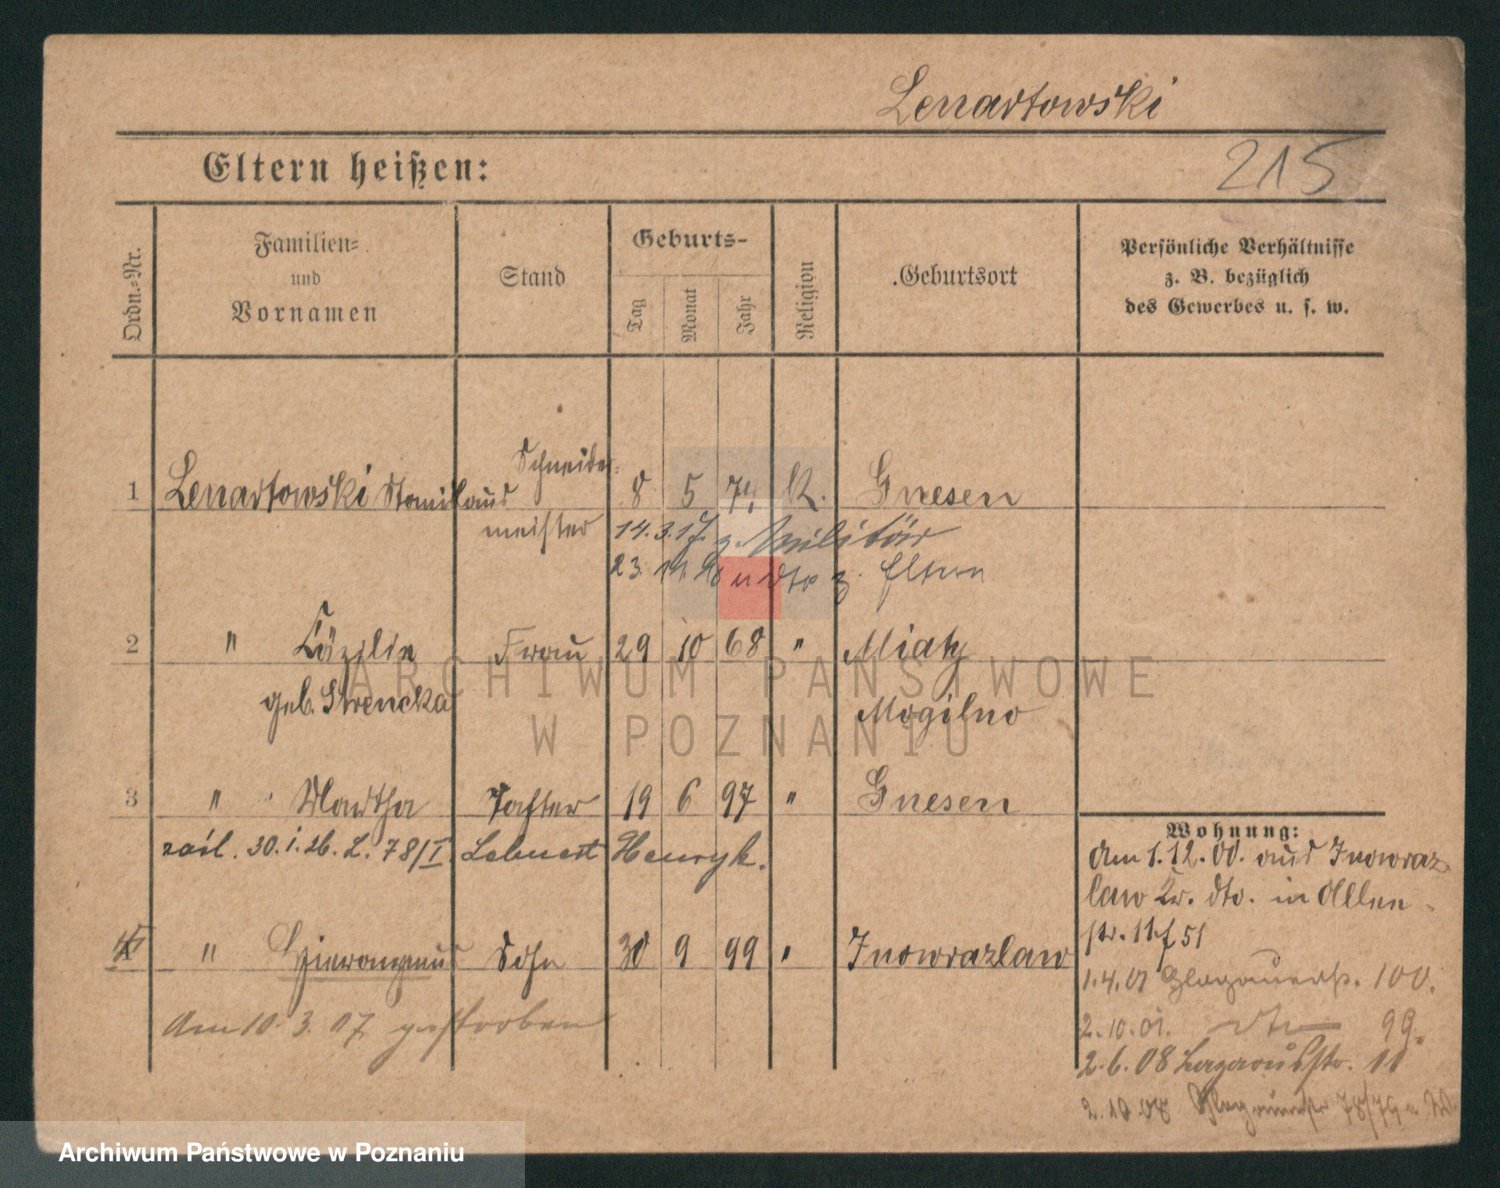 Lenartowski
Eltern heißen:
215
Ordn.-Nr.
Familien- und Vornamen
Stand
Geburts-
Tag
Monat
Jahr
Religion
Geburtsort
Persönliche Verhältnisse
z. B. bezüglich
des Gewerbes u. s. w.
1 Lenartowski Stanislaus Schneider-
meister 8 5 74 K. Gnesen
14.3.17. z. Militär
23. dto z. Eltern
2 " Cäzilie Frau 29 10 68 " Miaty
geb. Strencka Mogilno
3 " Martha Tochter 19 6 97 " Gnesen
30.1.26. L. 78/I Lehnert Henryk.
4 " Hieronymus Sohn 30 9 99 " Inowrazlaw
Am 10.3.07 gestorben
Wohnung:
Am 1.12.00. aus Inowraz-
law Kr. dto. in Allen-
str. 11 51
1.4.01 Glogauerstr. 100.
2.10.01. dto 99.
2.6.08 Lazarusstr. 11
2.10.08 Glogauerstr 78/79
ARCHIWUM PAŃSTWOWE
W POZNANIU
Archiwum Państwowe w Poznaniu